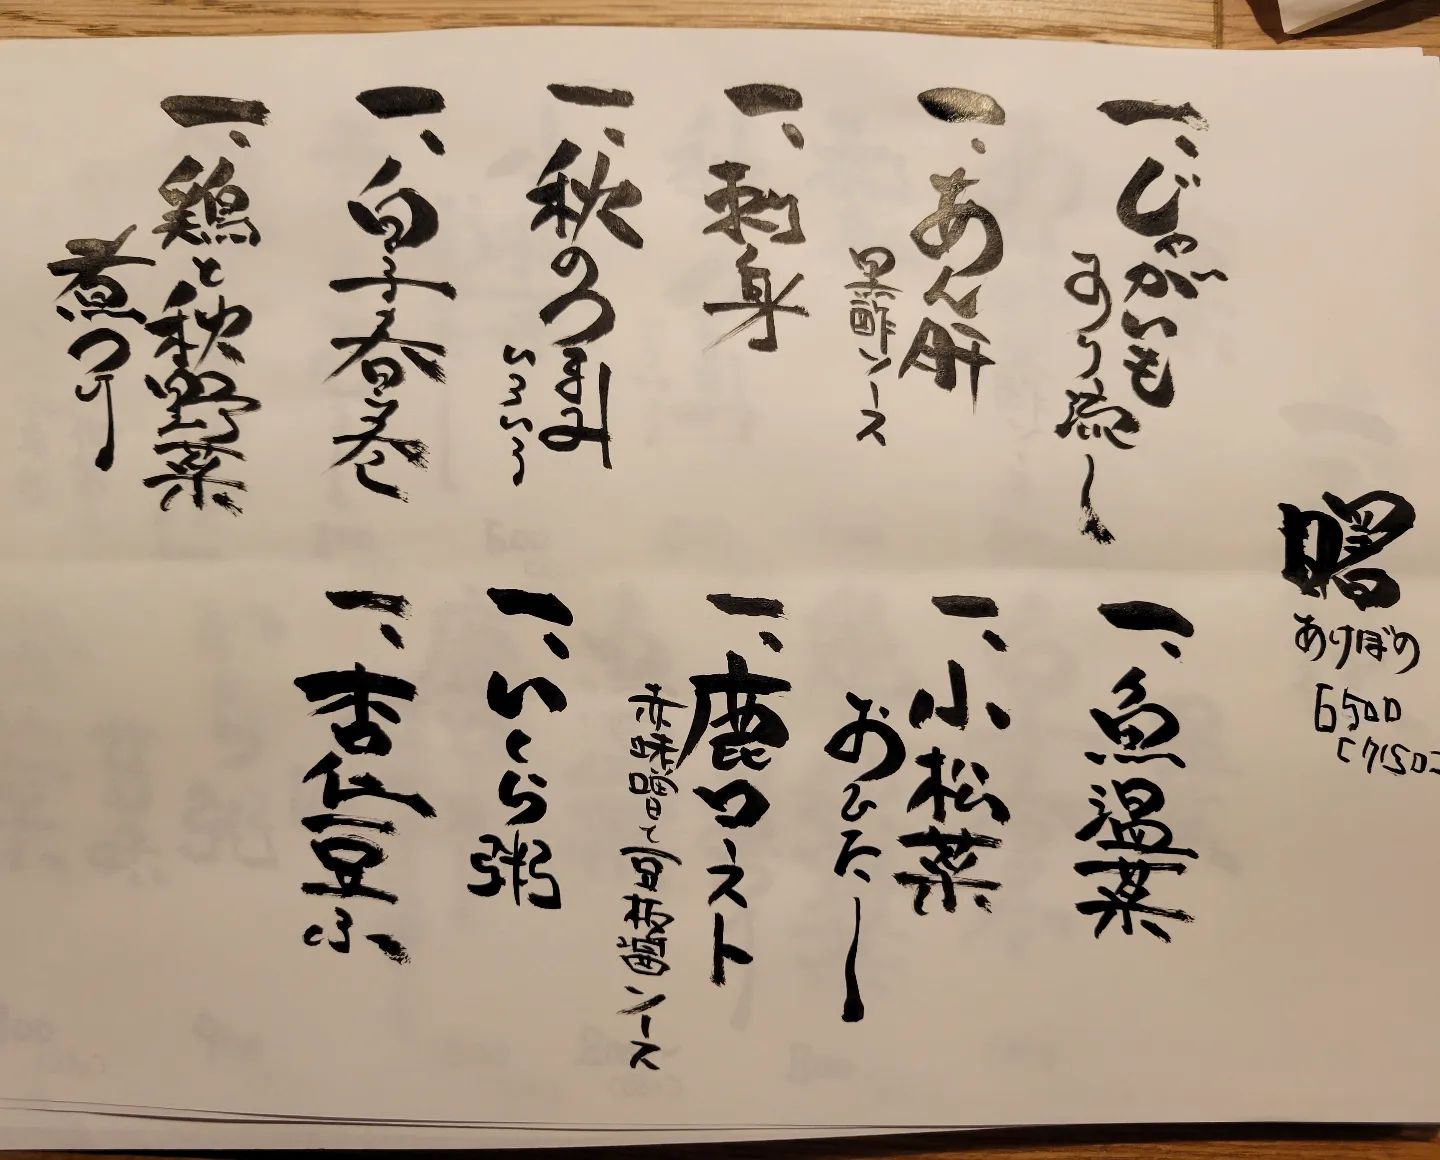 曙
あけぼの
6500
(7150)
一、じゃがいも
すり流し
一、あん肝
黒酢ソース
一、刺身
一、秋のつまみ
いろいろ
一、白子春巻
一、鶏と秋野菜
煮つけ
一、魚温菜
一、小松菜
おひたし
一、鹿ロースト
赤味噌と
ソース
一、いくら粥
一、杏仁豆ふ